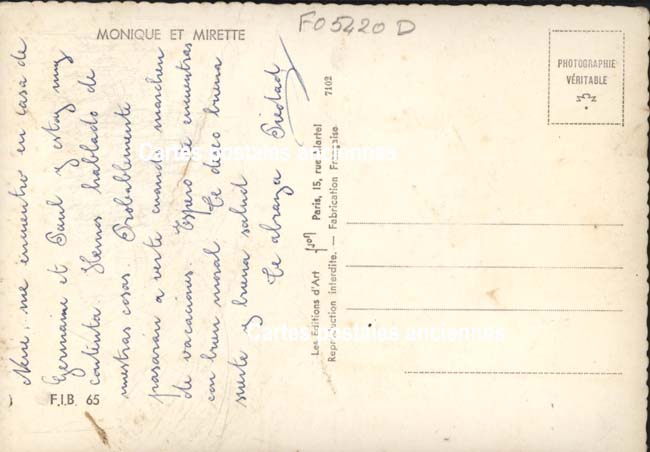 FO5420 D
MONIQUE ET MIRETTE
PHOTOGRAPHIE
VÉRITABLE
me encuentro en casa de
Germaine et Paul y estoy muy
contenta. Hemos hablado de
nuestras cosas Probablemente
pasaran a verte cuando marchen
de vacaciones. Espero te encuentras
con buen moral Te deseo buena
suerte y buena salud
Te abraza Piedad
Les Éditions d'Art Paris, 15, rue Martel 7102
Reproduction interdite. — Fabrication Française
F.I.B. 65
Cartes postales anciennes
Cartes postales anciennes